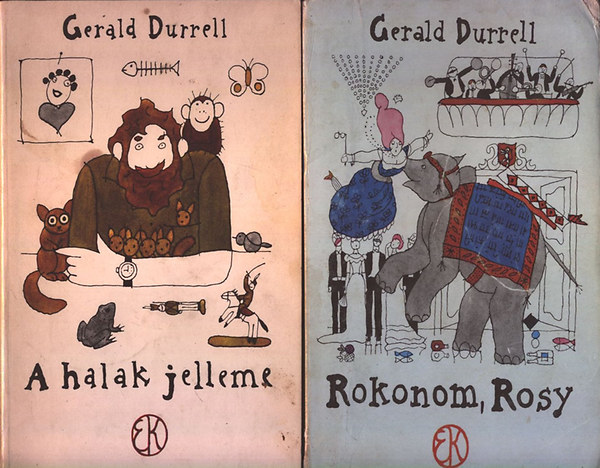 Gerald Durrell
A halak jelleme
EK
Gerald Durrell
Rokonom, Rosy
EK